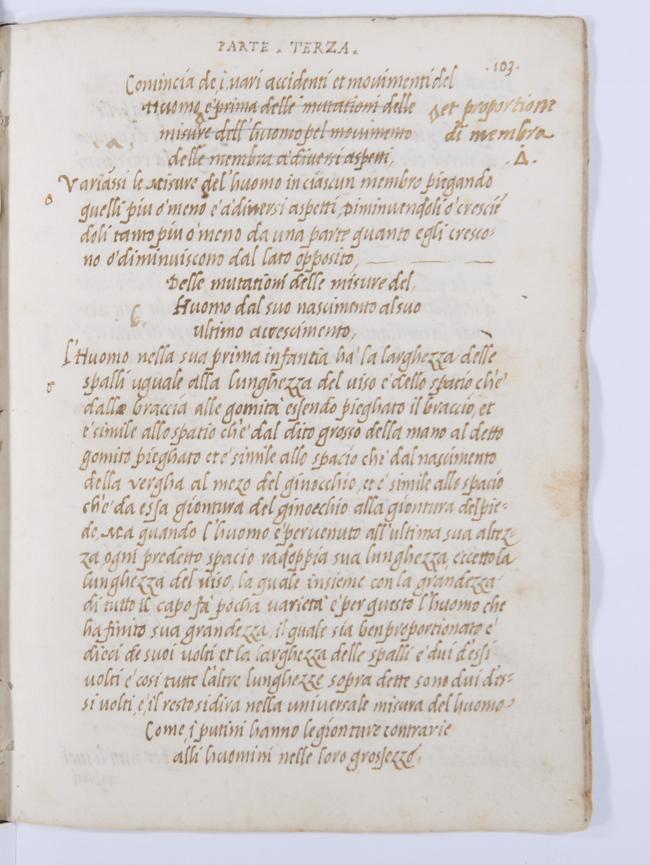 PARTE . TERZA .
.103.
Comincia de i vari accidenti et movimenti del
Huomo e prima delle mutationi delle
et proportione
misure dell'huomo pel movimento
di membra
.a.
delle membra a diversi aspetti,
Δ.
Variassi le misure del'huomo in ciascun membro piegando
quelli piu o' meno e a diversi aspetti, Diminuendoli o' crescie
doli tanto piu o' meno da una parte quanto egli cresco-
no o' diminuiscono dal lato opposito,
Delle mutationi delle misure del,
Huomo dal suo nascimento al suo
6.
ultimo acrescimento,
L'Huomo nella sua prima infantia ha' la larghezza delle
spalli uguale alla lunghezza del viso e' dello spatio ch'è
dalle braccia alle gomita' essendo pieghato il braccio, et
e' simile allo spatio ch'è dal dito grosso della mano al detto
gomito pieghato et e' simile allo spacio che dal nascimento
della vergha al mezo del ginocchio, et e' simile allo spacio
ch'è da essa giontura del ginocchio alla giontura del pie-
de, Ma quando l'huomo e' pervenuto all'ultima sua altez-
za, ogni predetto spacio radoppia sua lunghezza, eccetto la
lunghezza del viso, la quale insieme con la grandezza
di tutto il capo fa' pocha varieta' e' per questo l'huomo che
ha finito sua grandezza, il quale sia ben proportionato e'
dieci de suoi volti et la larghezza delle spalli e' dui d'essi
volti e' cosi tutte l'altre lunghezze sopra dette sono dui d'es-
si volti, e', il resto si dira nella universale misura del huomo
Come, i putini hanno le gionture contrarie
alli huomini nelle loro grossezze,